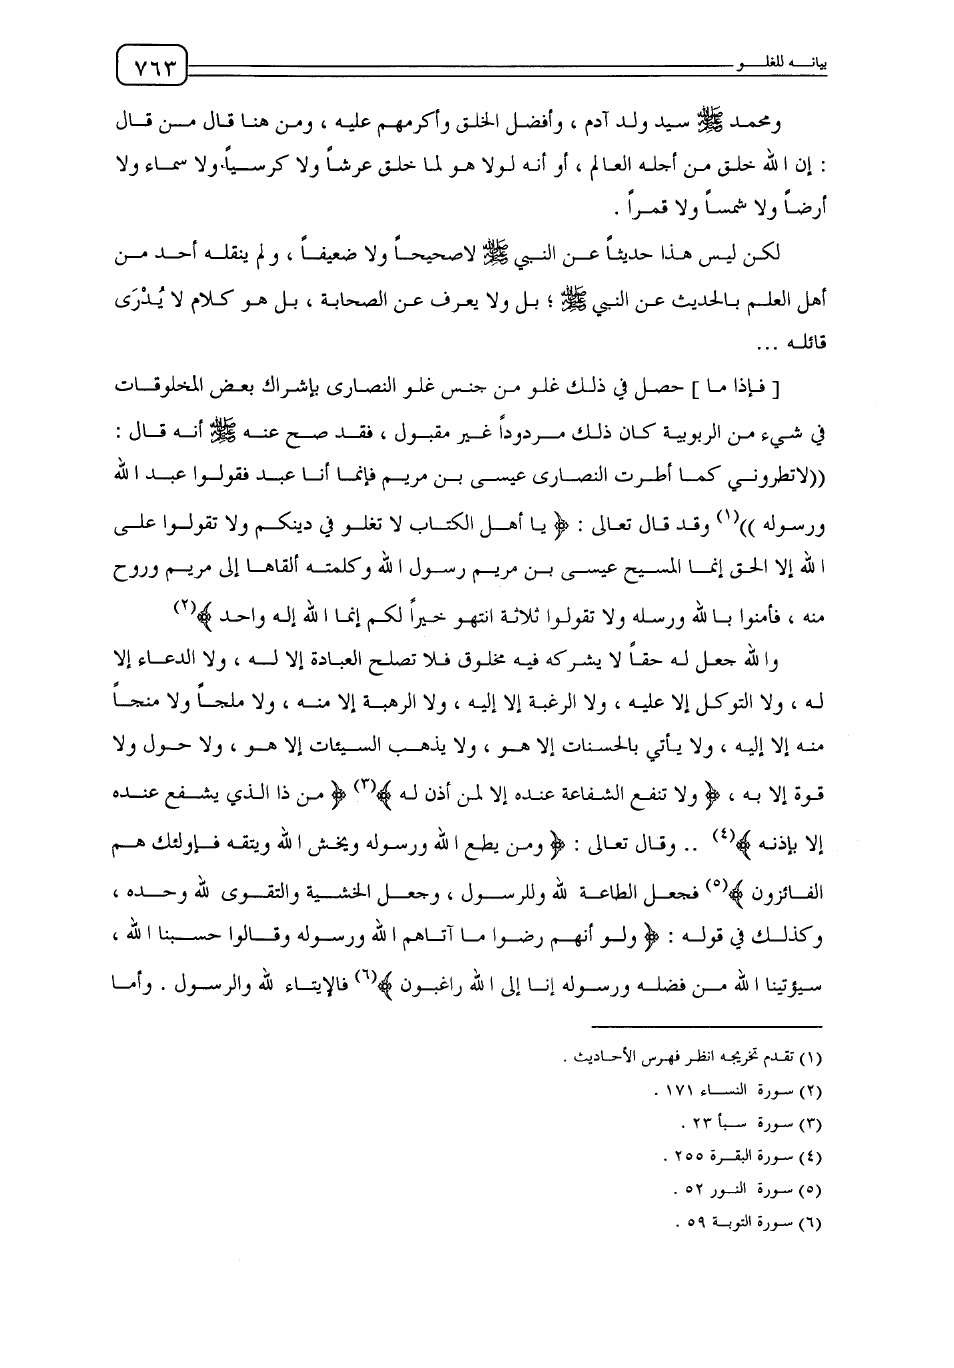 بيانه للغلو
٧٦٣
ومحمد ﷺ سيد ولد آدم ، وأفضل الخلق وأكرمهم عليه ، ومن هنا قال من قال
: إن الله خلق من أجله العالم ، أو أنه لولا هو لما خلق عرشاً ولا كرسياً.ولا سماء ولا
أرضاً ولا شمساً ولا قمراً .
لكن ليس هذا حديثاً عن النبي ﷺ لاصحيحاً ولا ضعيفاً ، ولم ينقله أحد من
أهل العلم بالحديث عن النبي ﷺ ؛ بل ولا يعرف عن الصحابة ، بل هو كلام لا يُدْرَى
قائله ...
[ فإذا ما ] حصل في ذلك غلو من جنس غلو النصارى بإشراك بعض المخلوقات
في شيء من الربوبية كان ذلك مردوداً غير مقبول ، فقد صح عنه ﷺ أنه قال :
((لاتطروني كما أطرت النصارى عيسى بن مريم فإنما أنا عبد فقولوا عبد الله
ورسوله ))(١) وقد قال تعالى : ﴿ يا أهل الكتاب لا تغلو في دينكم ولا تقولوا على
الله إلا الحق إنما المسيح عيسى بن مريم رسول الله وكلمته ألقاها إلى مريم وروح
منه ، فأمنوا بالله ورسله ولا تقولوا ثلاثة انتهو خيراً لكم إنما الله إله واحد ﴾(٢)
والله جعل له حقاً لا يشركه فيه مخلوق فلا تصلح العبادة إلا له ، ولا الدعاء إلا
له ، ولا التوكل إلا عليه ، ولا الرغبة إلا إليه ، ولا الرهبة إلا منه ، ولا ملجاً ولا منجاً
منه إلا إليه ، ولا يأتي بالحسنات إلا هو ، ولا يذهب السيئات إلا هو ، ولا حول ولا
قوة إلا به ، ﴿ ولا تنفع الشفاعة عنده إلا لمن أذن له ﴾(٣) ﴿ من ذا الذي يشفع عنده
إلا بإذنه ﴾(٤) .. وقال تعالى : ﴿ ومن يطع الله ورسوله ويخش الله ويتقه فإولئك هم
الفائزون ﴾(٥) فجعل الطاعة لله وللرسول ، وجعل الخشية والتقوى لله وحده ،
وكذلك في قوله : ﴿ ولو أنهم رضوا ما آتاهم الله ورسوله وقالوا حسبنا الله ،
سيؤتينا الله من فضله ورسوله إنا إلى الله راغبون ﴾(٦) فالإيتاء لله والرسول . وأما
(١) تقدم تخريجه انظر فهرس الأحاديث .
(٢) سورة النساء ١٧١ .
(٣) سورة سبأ ٢٣ .
(٤) سورة البقرة ٢٥٥ .
(٥) سورة النور ٥٢ .
(٦) سورة التوبة ٥٩ .